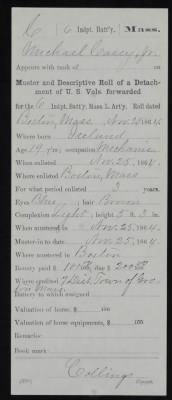 C | 6 Indpt. Batt'y. | Mass.
Michael Casey, Jr.
Appears with rank of
Muster and Descriptive Roll of a Detach-
ment of U. S. Vols. forwarded
for the 6 Indpt. Batty. Mass. L. Arty. Roll dated
Boston, Mass. Nov. 25, 1864.
Where born Ireland
Age 19 y'rs; occupation Mechanic
When enlisted Nov. 25, 1864.
Where enlisted Boston, Mass.
For what period enlisted 3 years.
Eyes Blue; hair Brown
Complexion Light; height 5 ft. 3 in.
When mustered in Nov. 25, 1864.
Muster-in date Nov. 25, 1864.
Where mustered in Boston
Bounty paid $ 100; due $ 200
Where credited 7 Dist. Town of
Mass.
Battery to which assigned
Valuation of horse, $ 100
Valuation of horse equipments, $ 100
Remarks:
Book mark:
Collings